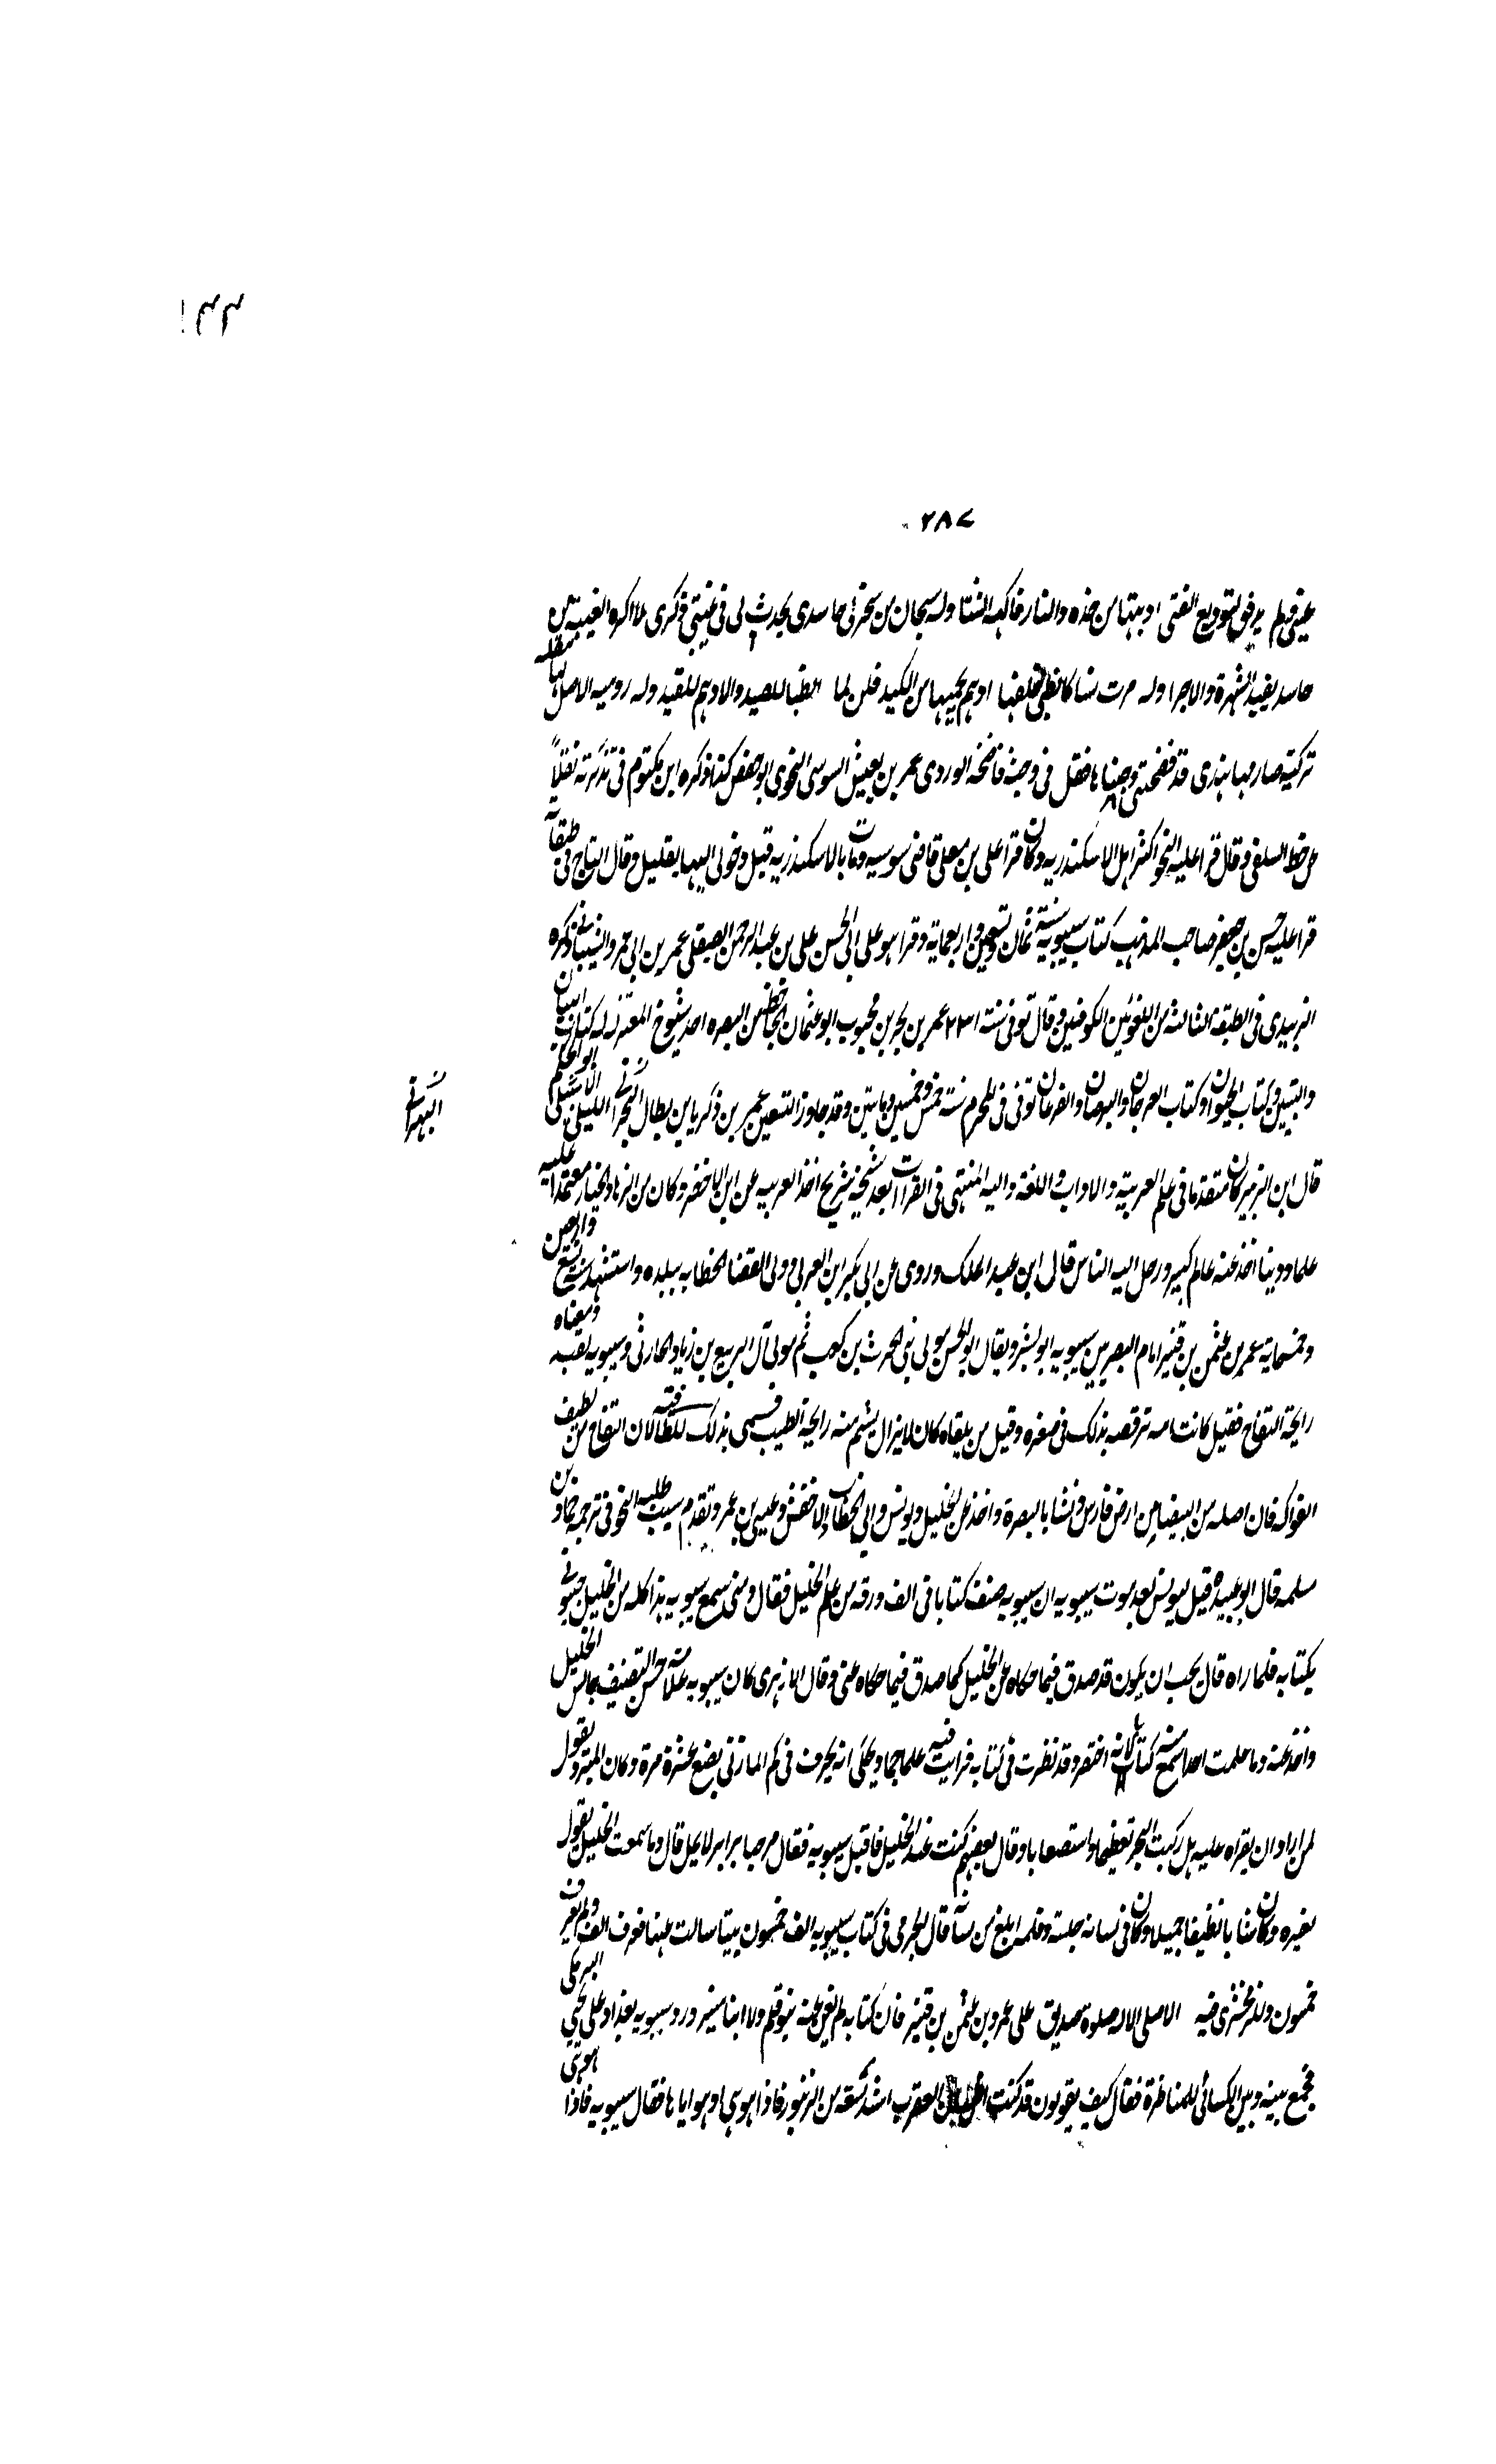 ١٤٤
٢٨٧
عيني فهلم يرفق لتوديع الفتى اوبتها من هذه والنار فاكهة الشتا وله سبحان من سخر لي حاسدى يحدث لى فى غيبتى ذكرى لا اكره الغيبة من
حاسد يفيد الشهرة والاجرا وله مرت نسا كالظبى خلفها ادهم يحميها من الكيد قلن لما الظبا للصيد والادهم للقيد وله روسية الاصل لها مقلة
تركية صارمها هندى قد فضحتنى وجنتاها فقل فى وجنة فاضحة الوردى عمر بن يعيش السوسى النحوى ابو حفص كذا ذكره ابن مكتوم فى تذكرته نقلاً
عن خط السلفى وقال قرا عليه النحو اكثر اهل الاسكندرية وكان قرا على بن معلى قاضى سوسية ومات بالاسكندرية قبل دخولى اليها بقليل وقال التاج فى طبقاته
قرا عليه حسن بن جعفر صاحب المذهب كتاب سيبويه سنة ثمان وتسعين واربعماية وقرا هو على ابى الحسن على بن عبد الرحمن الصقلى عمر بن ابى عمرو الشيبانى ذكره
الزبيدى فى الطبقة الثالثة من اللغويين الكوفيين وقال توفى سنة ٢٣١ عمر بن بحر بن محبوب ابو عثمان الجاحظ من البصره احد شيوخ المعتزله له كتاب البيان
والتبيين وكتاب الحيوان وكتاب العرجان والبرصان والقرعان توفى فى المحرم سنة خمس وخمسين وماتين وقد جاوز التسعين عمر بن زكريا بن بطال البهرانى اللبلى الاشبيلى ابو الحكم
البهرانى
قال ابن الزبير كان متقدما فى علم العربية والاداب واللغة واليه المنتهى فى القراات بعد شيخه شريح اخذ العربيه عن ابن الاخضر وكان من الزهاد الخيار معتمدا عليه
علما ودينا اخذ عنه عالم كبير ورحل اليه الناس قال ابن عبد الملك وروى عن ابى بكر ابن العربى وولى القضا والخطابه ببلده واستشهد سنة تسع واربعين
وخمسماية عمر بن عثمن بن قنبر امام البصريين سيبويه ابو بشر ويقال ابو الحسن مولى بنى الحرث بن كعب ثم مولى آل الربيع بن زياد الحارثى وسيبويه لقبه ومعناه
رايحة التفاح فقيل كانت امه ترقصه بذلك فى صغره وقيل من يلقاه كان لايزال يشم منه رايحة الطيب فسمى بذلك وقيل للطافته لان التفاح من لطيف
الفواكه فان اصله من البيضا من ارض فارس ونشا بالبصرة واخذ عن الخليل ويونس وابى الخطاب الاخفش وعيسى بن عمر وتقدم سبب طلبه النحو فى ترجمة حماد بن
سلمه قال ابو عبيدة قيل ليونس بعد موت سيبويه ان سيبويه صنف كتابا فى الف ورقه من علم الخليل فقال ومتى سمع سيبويه هذا كله من الخليل جيئونى
بكتابه فلما راه قال يجب ان يكون قد صدق فيما حكاه عن الخليل كما صدق فيما حكاه عنى وقال الازهرى كان سيبويه علامة حسن التصنيف جالس الخليل
واخذ عنه وما علمت احدا سمع منه كتابه لانه اختضر وقد نظرت فى كتابه فرايت فيه علما جما وحكى انه يحرف فى كم المازنى بضع عشرة مرة وكان المبرد يقول
لمن اراد ان يقراه عليه هل ركبت البحر تعظيما واستصعابا وقال بعضهم كنت عند الخليل فاقبل سيبويه فقال مرحبا بزاير لا يمل قال وما سمعت الخليل يقول
لغيره وكان شابا نظيفا جميلا وكان فى لسانه حبسة وقلمه ابلغ من لسانه قال الجرمى فى كتاب سيبويه الف وخمسون بيتا سالت عنها فعرف الف ولم يعرف
خمسون وللزمخشرى فيه الا صلى الاله صلوة صدق على عمرو بن عثمن بن قنبر فان كتابه لم يغن عنه بنو قلم ولا ابنا منبر ورد سيبويه بغداد على يحيى البرمكى
فجمع بينه وبين الكسائى للمناظرة فقال كيف تقولون قد كنت اظن ان العقرب اشد لسعة من الزنبور فاذا هو هى او هو اياها فقال سيبويه فاذا هو هى